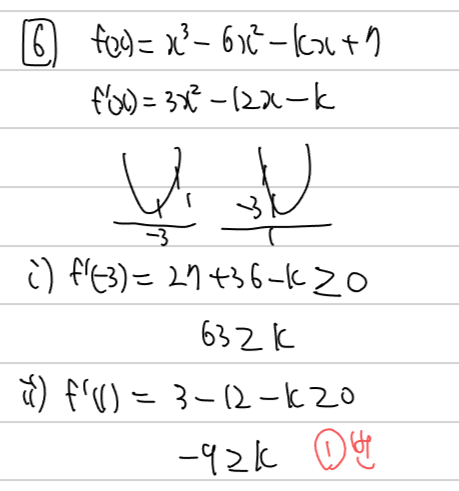 6 f(x) = x³ - 6x² - kx + 7
f'(x) = 3x² - 12x - k
1 -3
-3 1
i) f'(-3) = 27 + 36 - k ≥ 0
63 ≥ k
ii) f'(1) = 3 - 12 - k ≥ 0
-9 ≥ k ①번